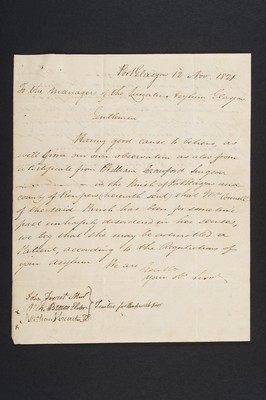 Port Glasgow 12 Nov. 1821
To the Managers of the Lunatic Asylum Glasgow
Gentlemen
Having good cause to believe, as
well from our own observation as also from
a Certificate from William Crawford Surgeon
in the Parish of Port Glasgow and
County of Renfrew, herewith sent, that Mrs
of the said Parish has been for some time
past unhappily disordered in her senses,
we beg that she may be admitted a
Patient, according to the Regulations of
your Asylum. We are
Gentlemen
Your
John